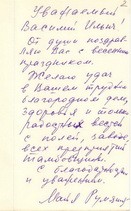 Уважаемый
Василий Ильич!
От души поздрав-
ляю Вас с весенним
праздником.
Желаю удач
в Вашем трудном
благородном деле,
здоровья и только
радостных вестей
с полей, заводов
всех предприятий
тамбовщины.
С благодарностью
и уважением.
Майя Румянц